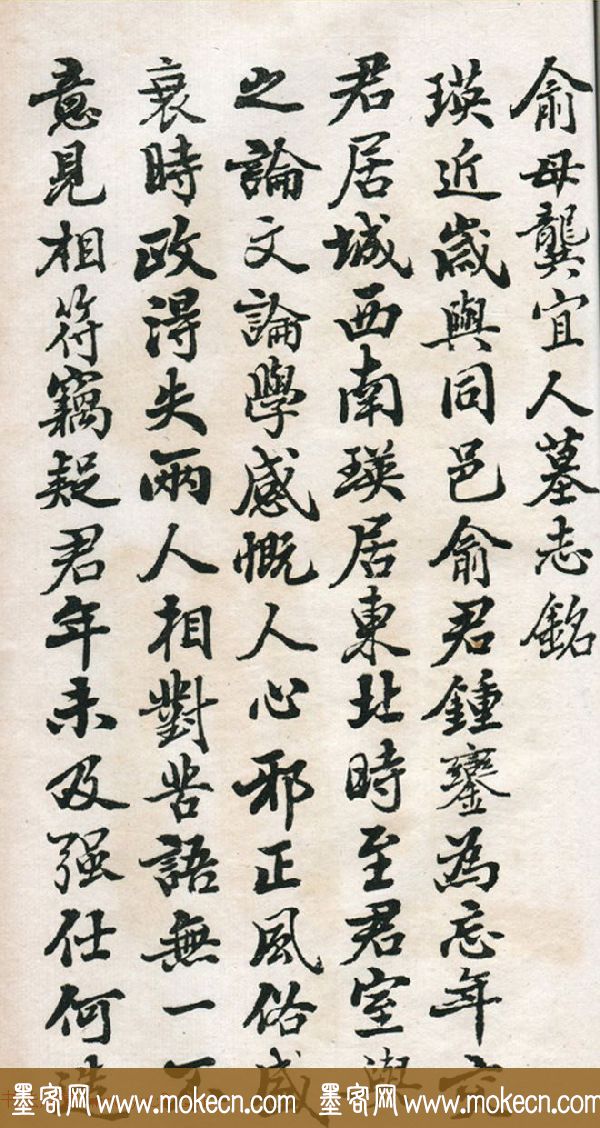 俞母龔宜人墓志銘
瑛近歲與同邑俞君鍾鑾為忘年交
君居城西南瑛居東北時至君室與
之論文論學感慨人心邪正風俗盛
衰時政得失兩人相對咨語無一不
意見相符竊疑君年未及强仕何造
墨客网 www.mokecn.com 墨客网 www.mokecn.com